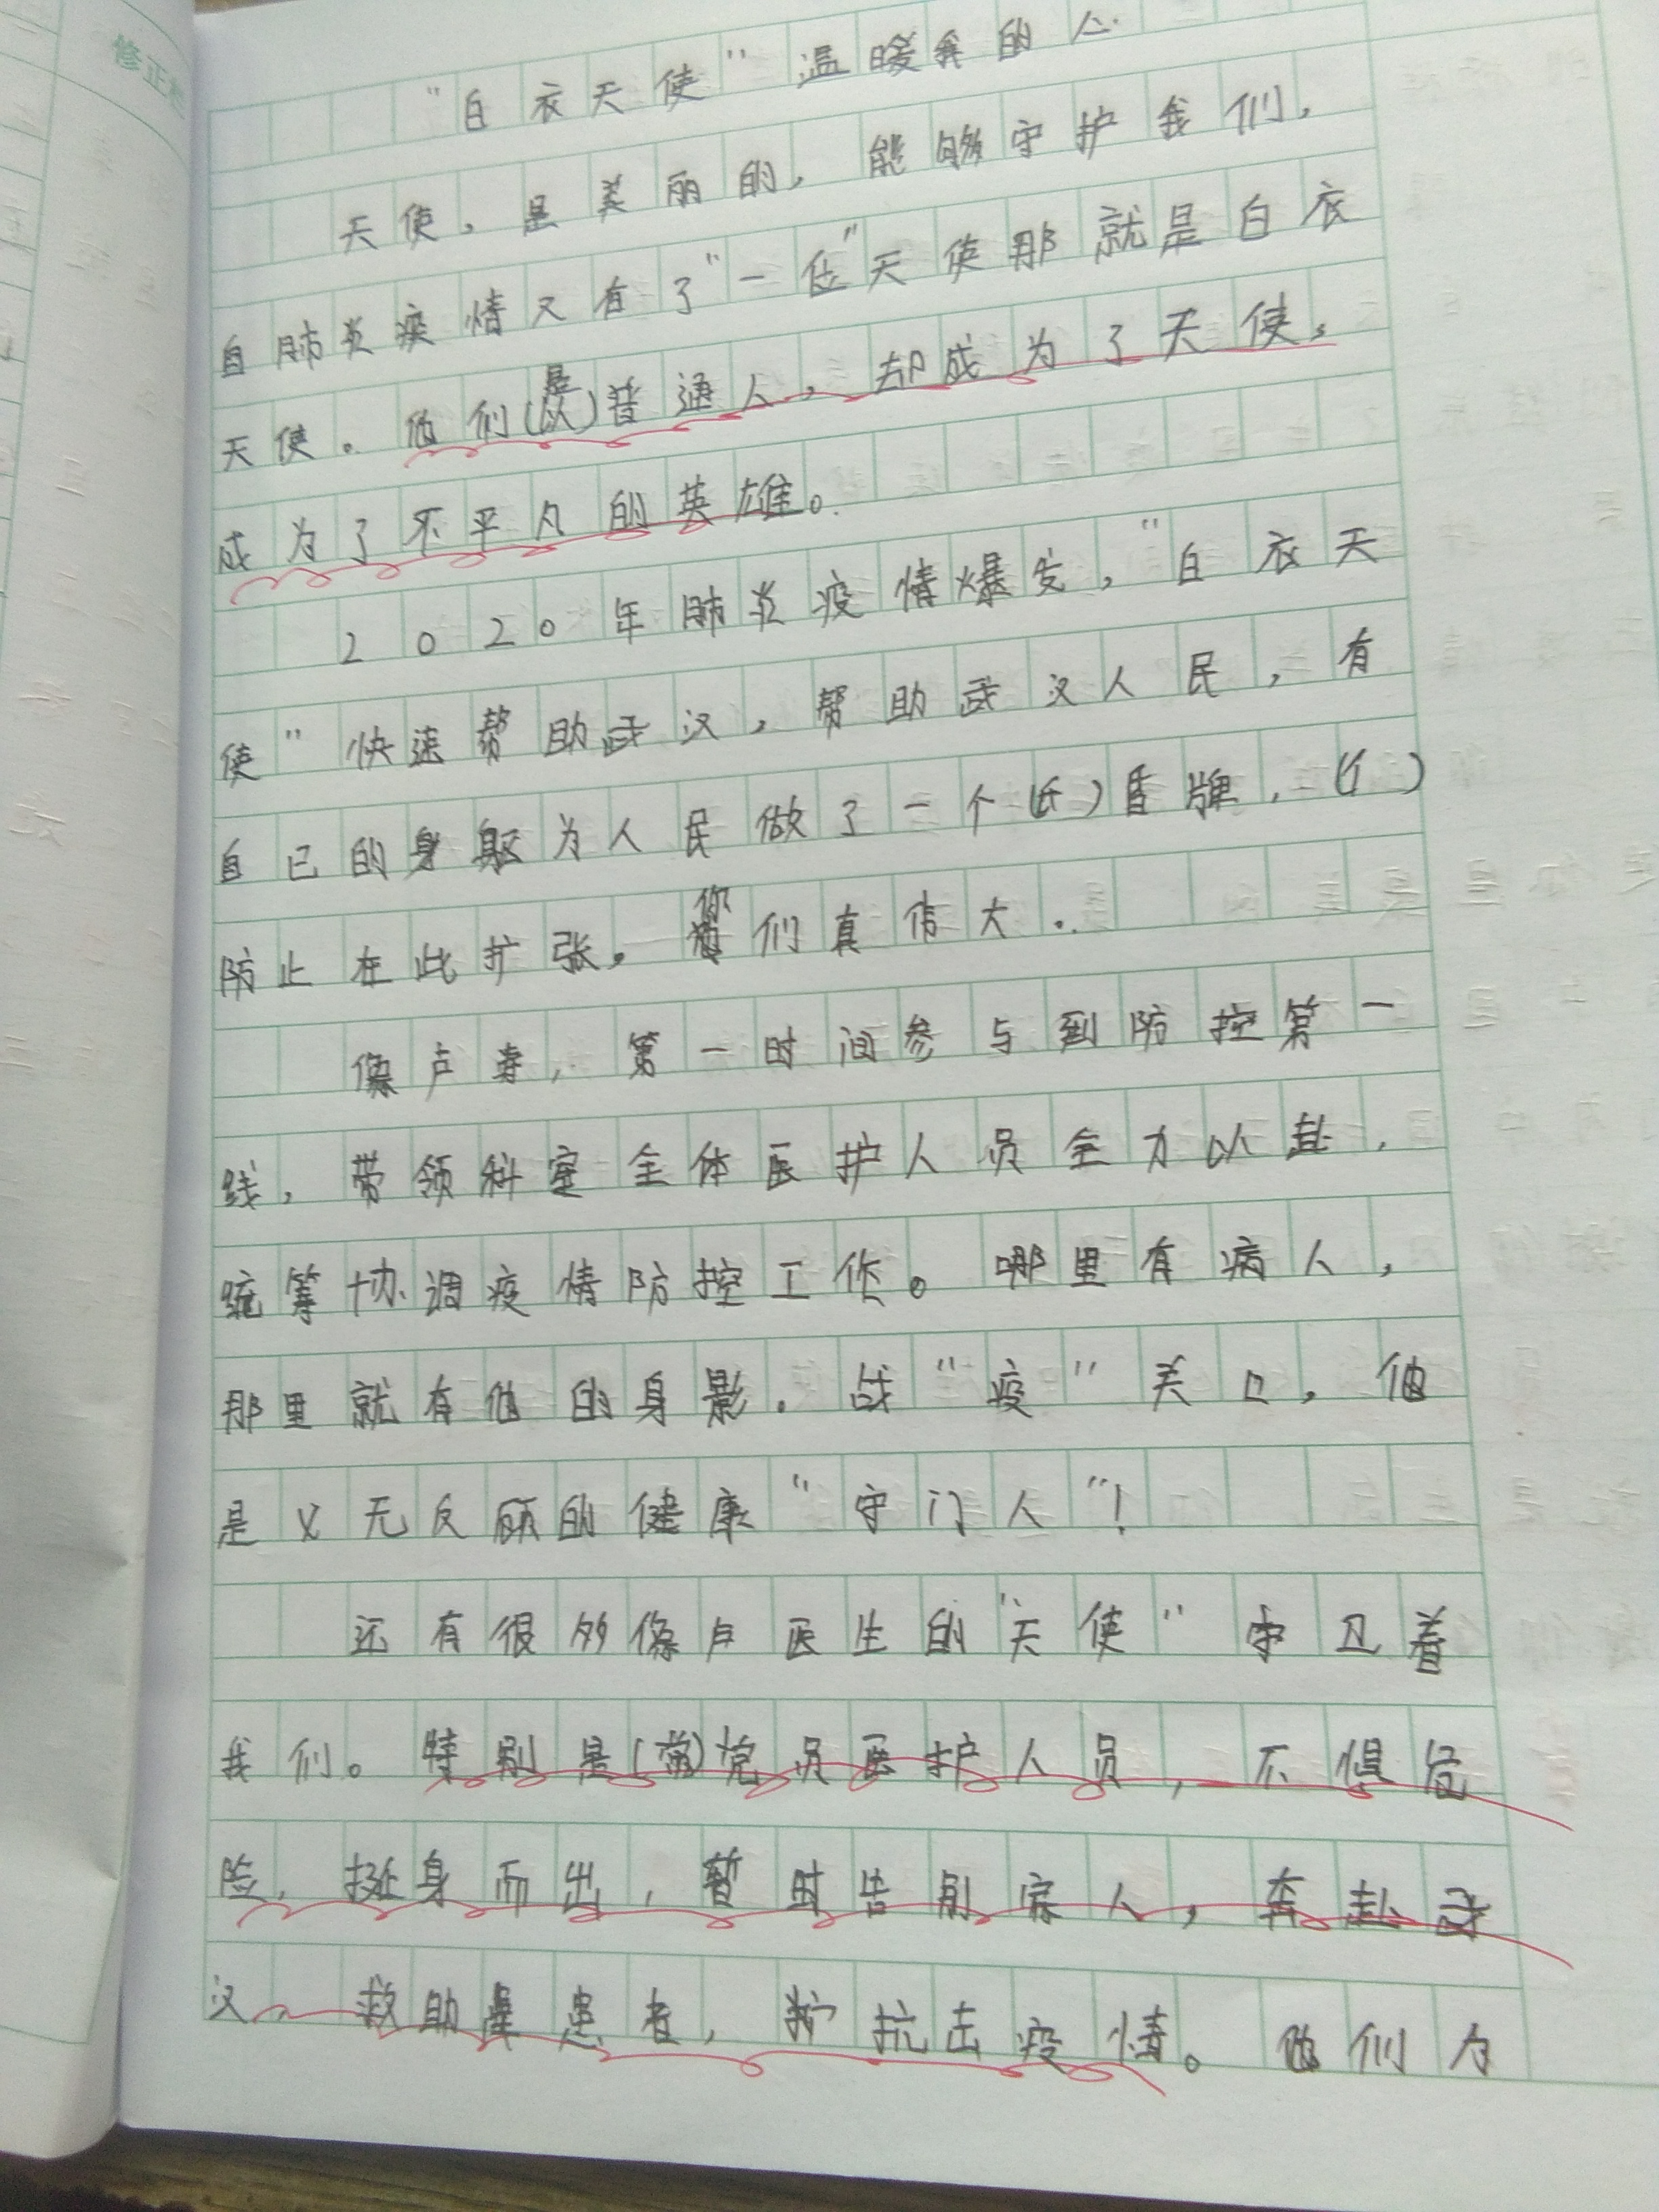 修正栏
“白衣天使”温暖我的心
天使，是美丽的，能够守护我们，
自肺炎疫情又有了“一位”天使那就是白衣
天使。他们(以)是普通人，却成为了天使，
成为了不平凡的英雄。
2020年肺炎疫情爆发，“白衣天
使”快速帮助武汉，帮助武汉人民，有
自已的身躯为人民做了一个(氏)盾牌，(个)
防止在此扩张。你们真伟大．
像卢寿，第一时间参与到防控第一
线，带领科室全体医护人员全力以赴，
统筹协调疫情防控工作。哪里有病人，
那里就有他的身影．战“疫”关口，他
是义无反顾的健康“守门人”！
还有很多像卢医生的“天使”守卫着
我们。特别是(常)党员医护人员，不惧危
险，挺身而出，暂时告别家人，奔赴武
汉，救助患者，抗击疫情。他们为